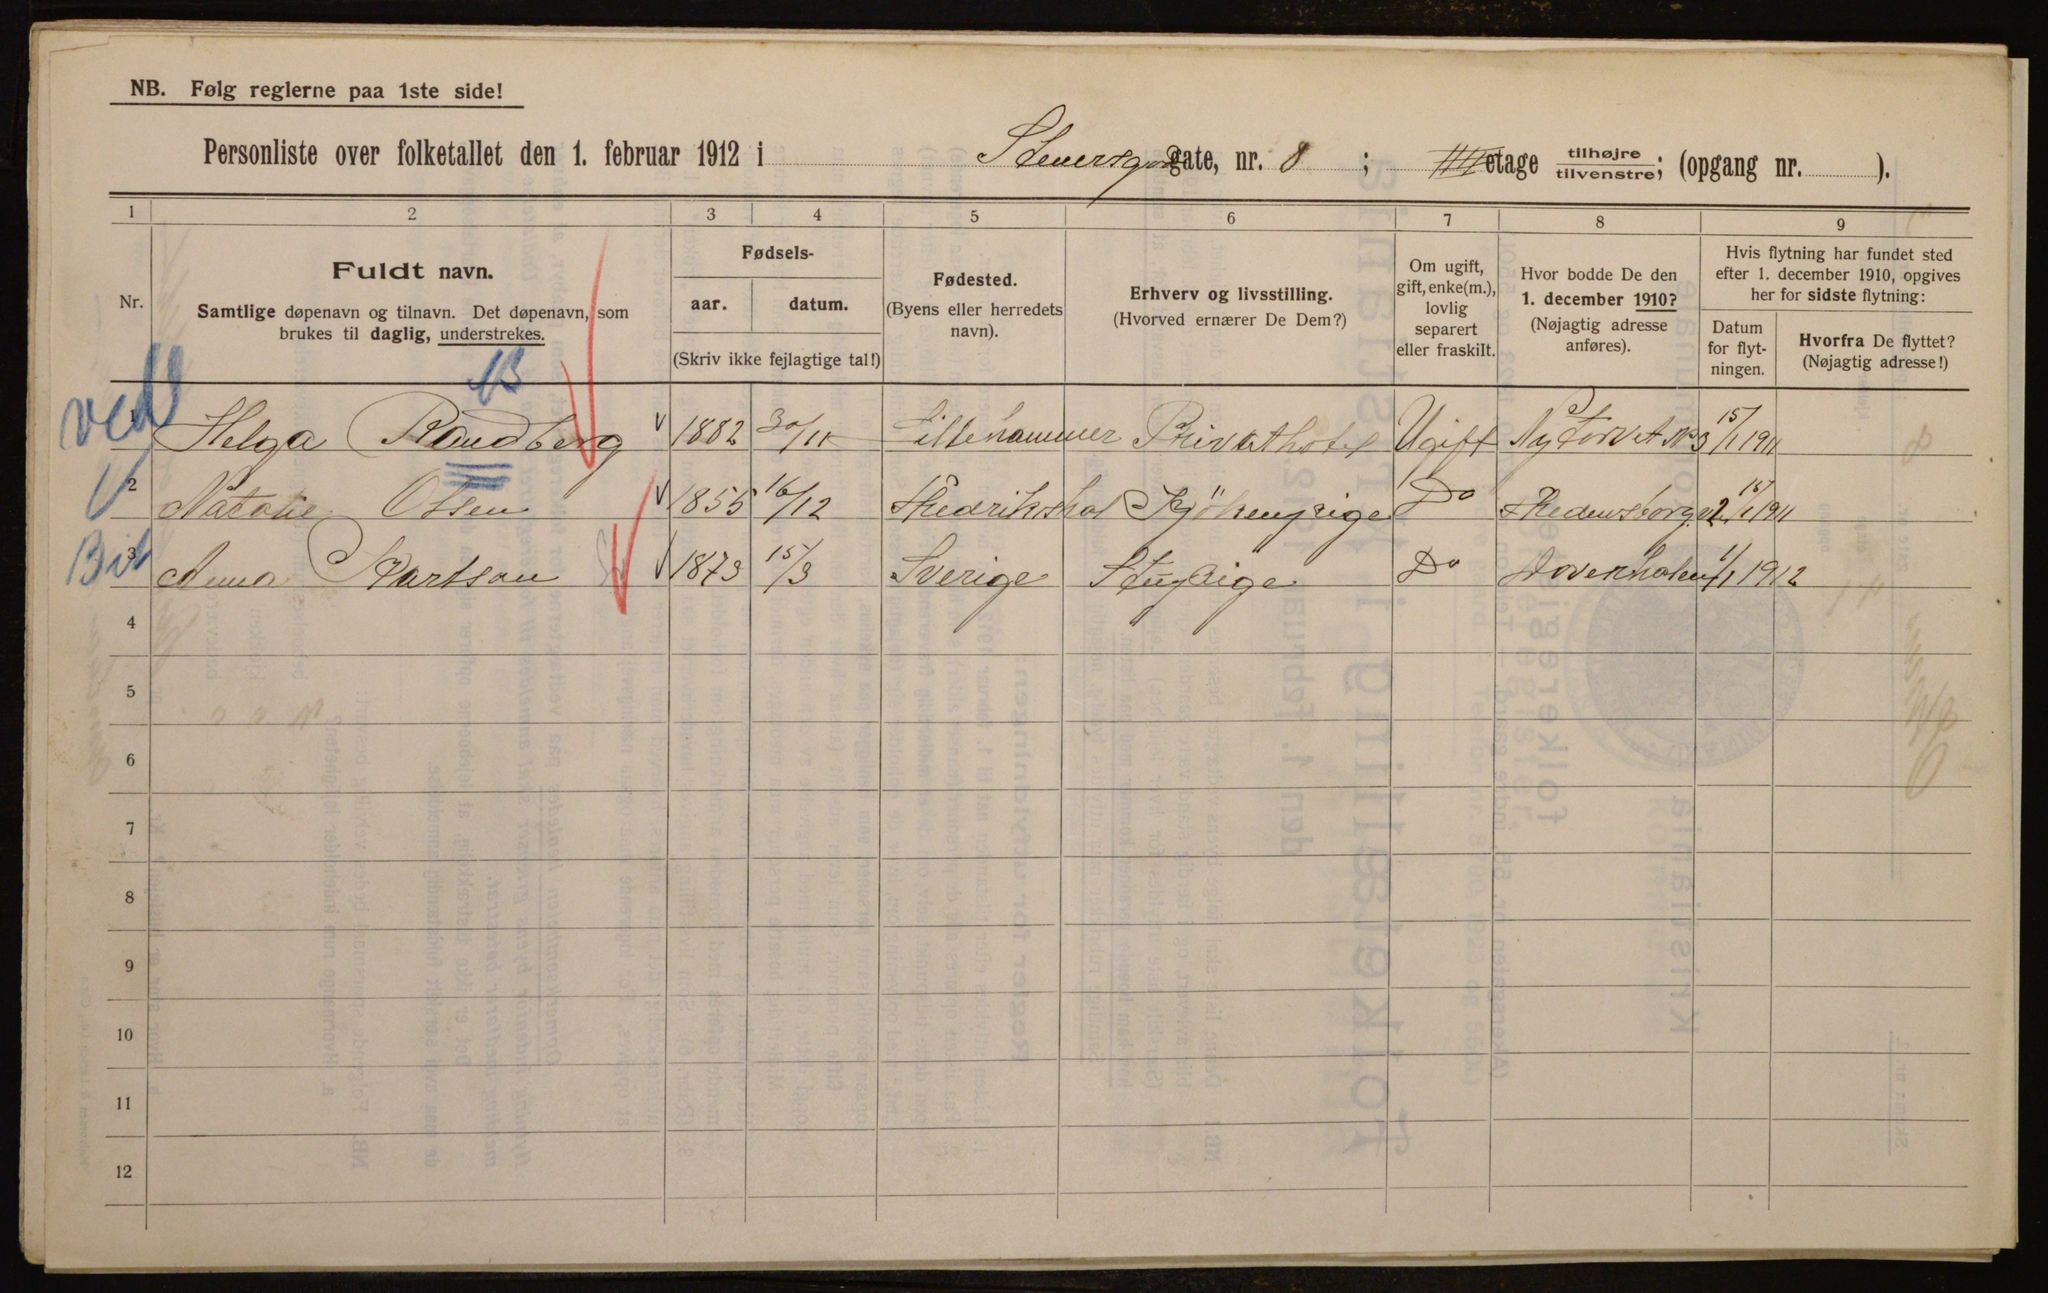 NB. Følg reglerne paa 1ste side!
Personliste over folketallet den 1. februar 1912 i Stenersgade gate, nr. 8 ; IIII etage tilhøjre tilvenstre; (opgang nr. ).
1 2 3 4 5 6 7 8 9
Nr.
Fuldt navn.
Samtlige døpenavn og tilnavn. Det døpenavn, som
brukes til daglig, understrekes.
Fødsels-
aar. datum.
(Skriv ikke fejlagtige tal!)
Fødested.
(Byens eller herredets
navn).
Erhverv og livsstilling.
(Hvorved ernærer De Dem?)
Om ugift,
gift, enke(m.),
lovlig
separert
eller fraskilt.
Hvor bodde De den
1. december 1910?
(Nøjagtig adresse
anføres).
Hvis flytning har fundet sted
efter 1. december 1910, opgives
her for sidste flytning:
Datum
for flyt-
ningen.
Hvorfra De flyttet?
(Nøjagtig adresse!)
1 Helga Randberg 1882 30/11 Lillehammer Privathotel Ugift Nytorvet No 3 15/1 1911
2 Natalie Olsen 1855 16/12 Fredrikshal Kjökenpige Do Fredensborgv. 2 15/1 1911
3 Anna Karlson 1873 15/3 Sverige Stuepige Do 1/1 1912
4
5
6
7
8
9
10
11
12